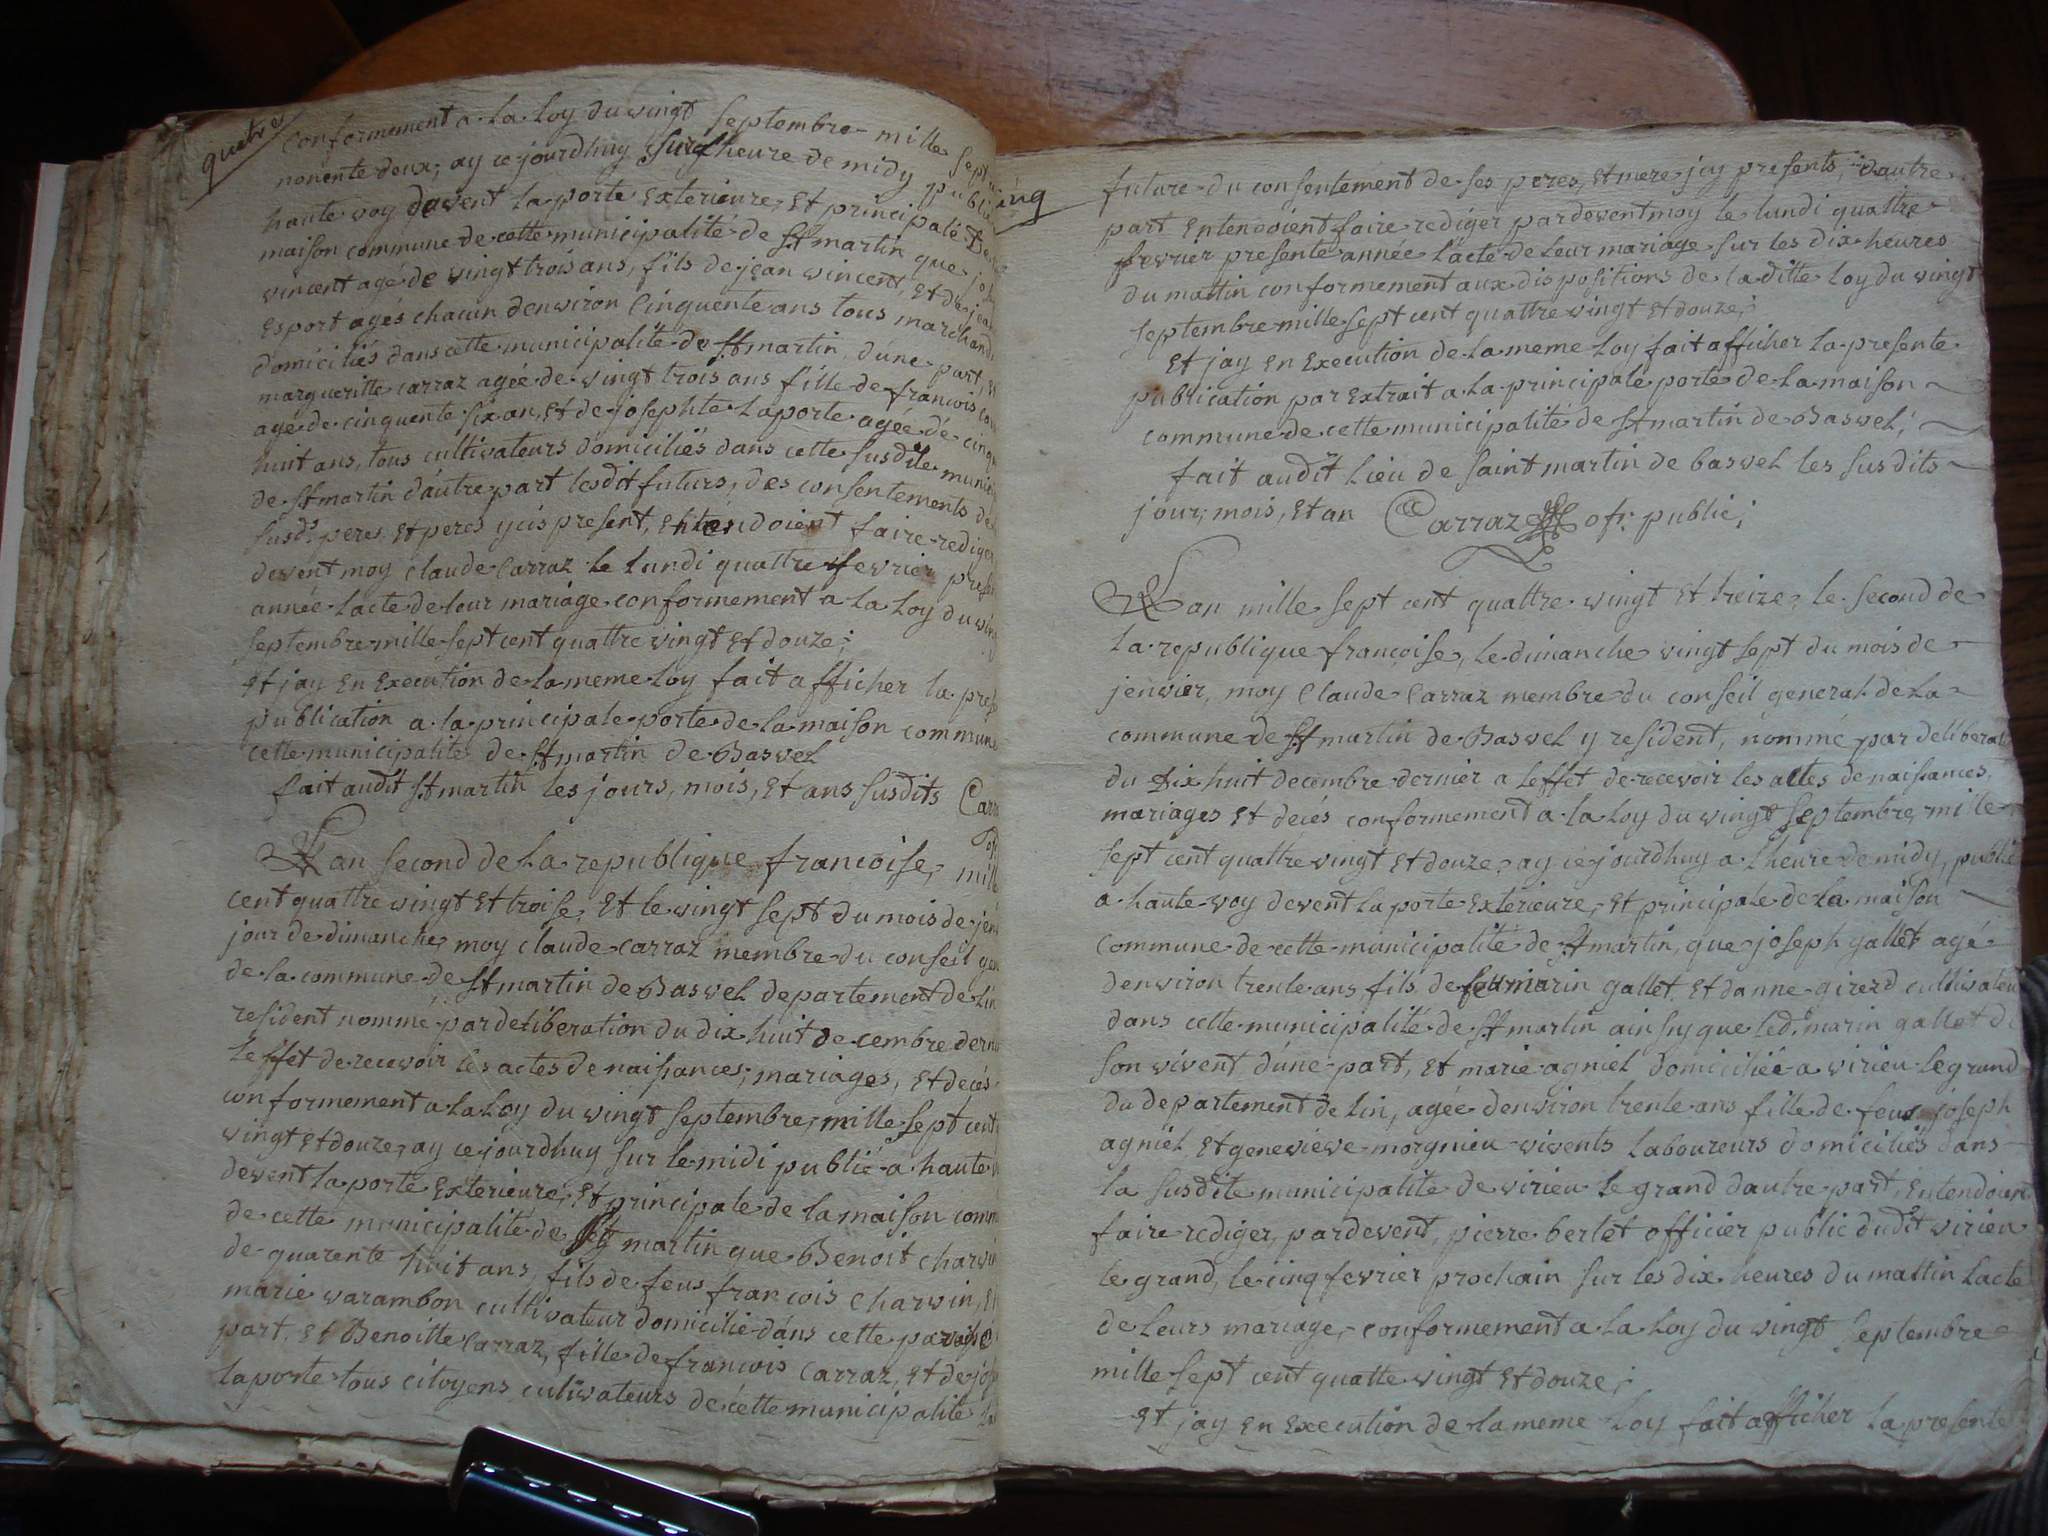 quatre
conformement a la loy du vingt septembre mille sept
nonente deux, ay ce jourdhuy sur lheure de midy publié
haute voy devent la porte exterieure, et principale De
maison commune de cette municipalité de St martin que jo
vincent agé de vingt trois ans, fils de jean vincent, et de jea
Esport agés chacun denviron Cinquente ans tous marchands
domiciliés dans cette municipalité de St martin, dune part, et
margueritte carraz agée de vingt trois ans fille de francois
agé de cinquente six an, et de josephte Laporte agée de cinq
huit ans, tous cultivateurs domiciliés dans cette susdite munici
de St martin dautre part lesdit futurs, des consentements de
susd. peres, et peres ycis present, entendoient faire rediger
devent moy Claude Carraz le Lundi quattre fevrier pres
année lacte de leur mariage conformement a la Loy du vin
septembre mille sept cent quattre vingt et douze;
et jay en execution de la meme Loy fait afficher la pres
publication a la principale porte de la maison commune
cette municipalité de St martin de Basvel
fait audit St martin les jours, mois, et ans susdits Carra
Lan second de La republique francoise, mill
cent quattre vingt et troise, et le vingt sept du mois de jen
jour de dimanche, moy claude carraz membre du conseil gen
de la commune de St martin de Basvel departement de Lin
resident nommé par deliberation du dix huit decembre dern
leffet de recevoir les actes de naissances, mariages, et decés
conformement a la Loy du vingt septembre, mille sept cent
vingt et douze, ay ce jourdhuy sur le midi publié a haute
devent la porte exterieure, et principale de la maison comm
de cette municipalité de St martin que Benoit charvin
de quarente huit ans, fils de feus francois charvin, et
marie varambon cultivateur domicilié dans cette paroisse
part, et Benoitte Carraz, fille de francois Carraz, et de jos
laporte tous citoyens cultivateurs de cette municipalite La
cinq
future du consentement de ses peres, et mere jcy presents, dautre
part entendoient faire rediger pardevent moy le lundi quattre
fevrier presente année lacte de Leur mariage sur les dix heures
du mattin conformement aux dispositions de la ditte Loy du vingt
septembre mille sept cent quattre vingt et douze;
Et jay en execution de la meme Loy fait afficher la presente
publication par extrait a la principale porte de la maison
commune de cette municipalité de St martin de Basvel;
fait audit Lieu de saint martin de basvel les susdits
jour, mois, et an Carraz ofr. public;
Lan mille sept cent quattre vingt et treize, le second de
La republique francoise, le dimanche vingt sept du mois de
jenvier, moy Claude Carraz membre du conseil general de La
commune de St martin de Basvel y resident, nommé par deliberat
du Dix huit decembre dernier a leffet de recevoir les actes de naissances,
mariages et decés conformement a la Loy du vingt septembre, mille
sept cent quattre vingt et douze, ay ce jourdhuy a lheure de midy, publié
a haute voy devent la porte exterieure, et principale de la maison
commune de cette municipalité de St martin, que joseph gallet agé
denviron trente ans, fils de feu marin gallet, et danne girerd cultivateu
dans cette municipalité de St martin ainsy que led. marin gallet de
son vivent dune part, et marie agniel domiciliée a virieu le grand
du departement de Lin, agée denviron trente ans fille de feu joseph
agniel et genevieve morgnieu vivents Laboureurs domiciliés dans
la susdite municipalité de virieu le grand dautre part, entendoient
faire rediger, pardevent, pierre berlet officier public dudit virieu
le grand, le cinq fevrier prochain sur les dix heures du mattin Lacte
de Leurs mariage, conformement a la Loy du vingt septembre
mille sept cent quatte vingt et douze;
et jay en execution de la meme Loy fait afficher La presente